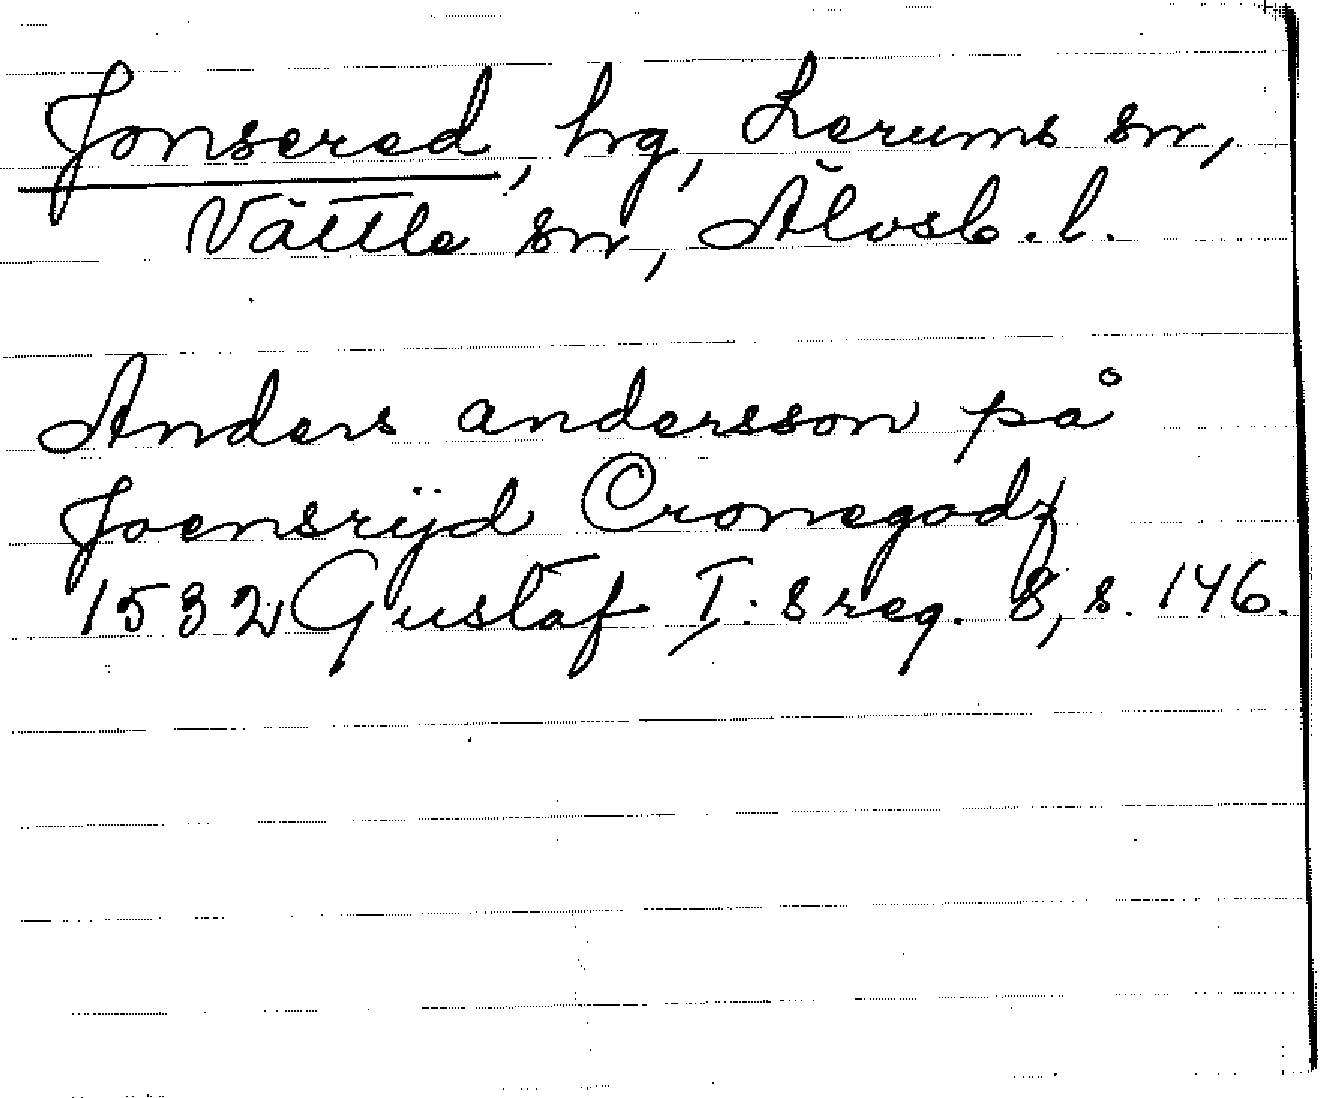 Jonsered, hg, Lerums sn,
Vättle sn, Älvsb. l.
Anders andersson på
Joensrÿd Cronegodz
1532 Gustaf I:s reg. 8, s. 146.